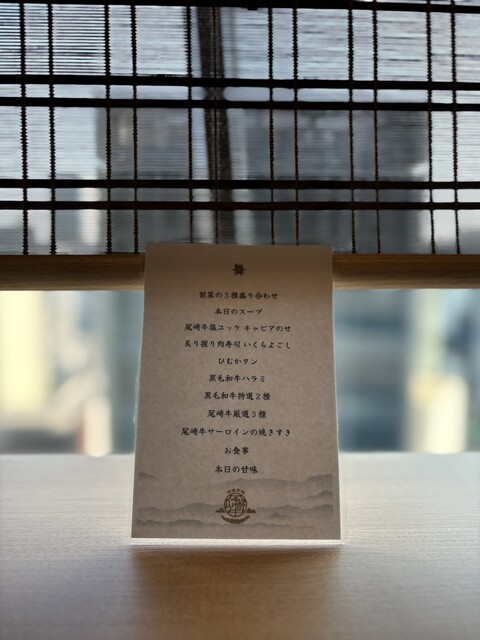 舞
前菜の3種盛り合わせ
本日のスープ
尾崎牛塩ユッケ キャビアのせ
炙り握り肉寿司 いくらよごし
ひむかタン
黒毛和牛ハラミ
黒毛和牛特選2種
尾崎牛厳選3種
尾崎牛サーロインの焼きすき
お食事
本日の甘味